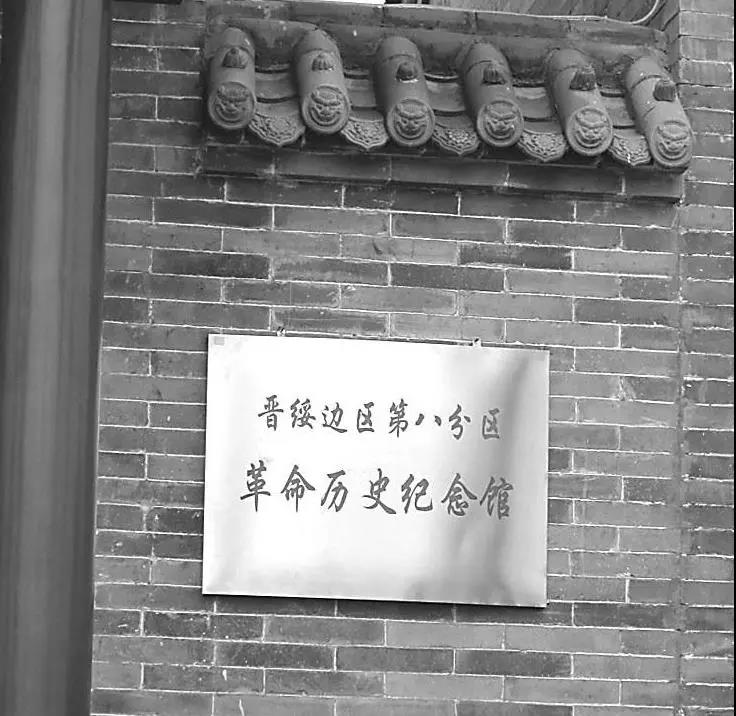 晋绥边区第八分区
革命历史纪念馆